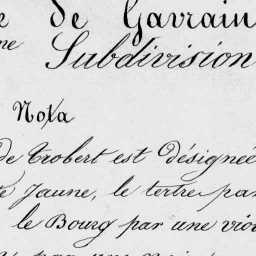 de Gavrain
Subdivision
Nota
de Trobert est désignée
Jaune, le tertre par
le Bourg par une